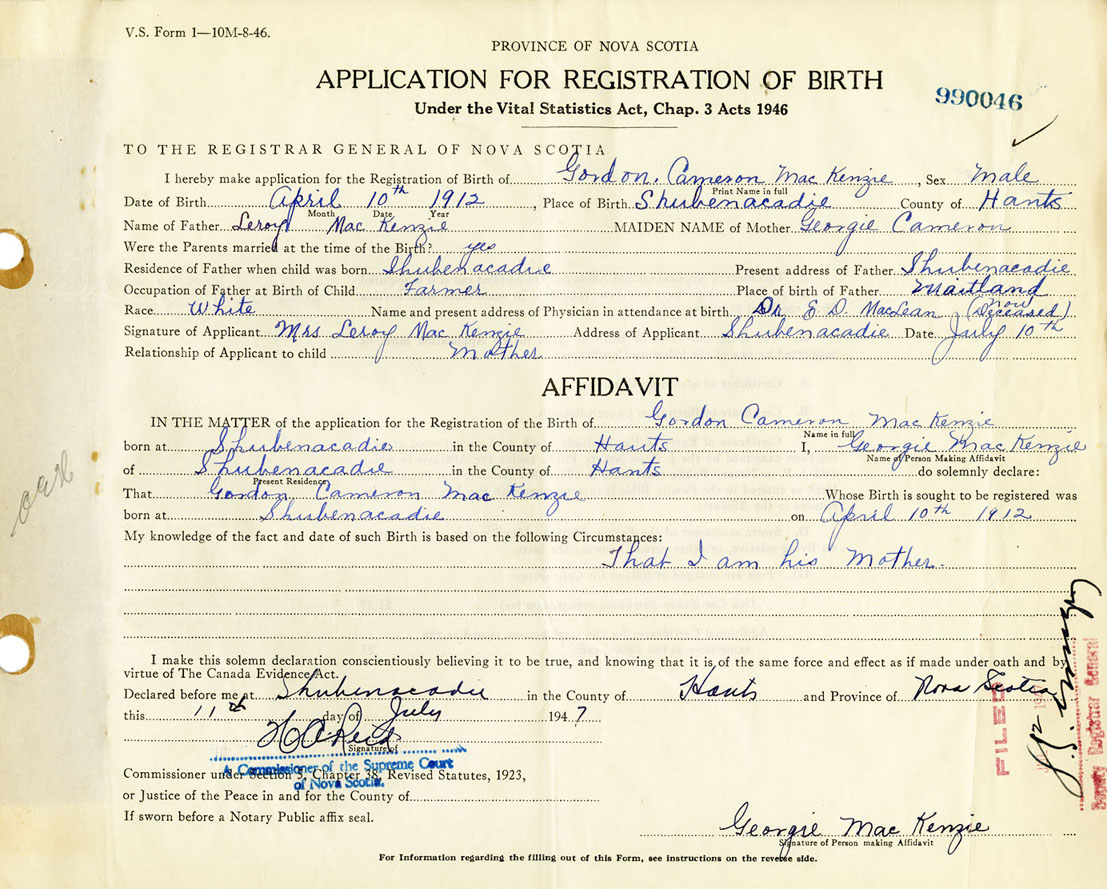 V.S. Form 1—10M-8-46.
PROVINCE OF NOVA SCOTIA
APPLICATION FOR REGISTRATION OF BIRTH
990046
Under the Vital Statistics Act, Chap. 3 Acts 1946
TO THE REGISTRAR GENERAL OF NOVA SCOTIA
I hereby make application for the Registration of Birth of Gordon. Cameron Mac Kenzie, Sex Male
Print Name in full
Date of Birth April 10th 1912, Place of Birth Shubenacadie County of Hants
Month Date Year
Name of Father Leroy Mac Kenzie MAIDEN NAME of Mother Georgie Cameron
Were the Parents married at the time of the Birth? yes
Residence of Father when child was born Shubenacadie Present address of Father Shubenacadie
Occupation of Father at Birth of Child Farmer Place of birth of Father Maitland
Race White Name and present address of Physician in attendance at birth Dr. E. D. MacLean (now Deceased)
Signature of Applicant Mrs Leroy Mac Kenzie Address of Applicant Shubenacadie Date July 10th
Relationship of Applicant to child Mother
AFFIDAVIT
IN THE MATTER of the application for the Registration of the Birth of Gordon Cameron Mac Kenzie
Name in full
born at Shubenacadie in the County of Hants I, Georgie Mac Kenzie
Name of Person Making Affidavit
of Shubenacadie in the County of Hants do solemnly declare:
Present Residence
That Gordon Cameron Mac Kenzie Whose Birth is sought to be registered was
born at Shubenacadie on April 10th 1912
My knowledge of the fact and date of such Birth is based on the following Circumstances:
That I am his Mother.
I make this solemn declaration conscientiously believing it to be true, and knowing that it is of the same force and effect as if made under oath and by
virtue of The Canada Evidence Act.
Declared before me at Shubenacadie in the County of Hants and Province of Nova Scotia
this 11th day of July 1947
H A Reid
Signature of
A Commissioner of the Supreme Court
of Nova Scotia.
Commissioner under Section 3, Chapter 38, Revised Statutes, 1923,
or Justice of the Peace in and for the County of
If sworn before a Notary Public affix seal.
Georgie Mac Kenzie
Signature of Person making Affidavit
For Information regarding the filling out of this Form, see instructions on the reverse side.
FILED
Deputy Registrar General